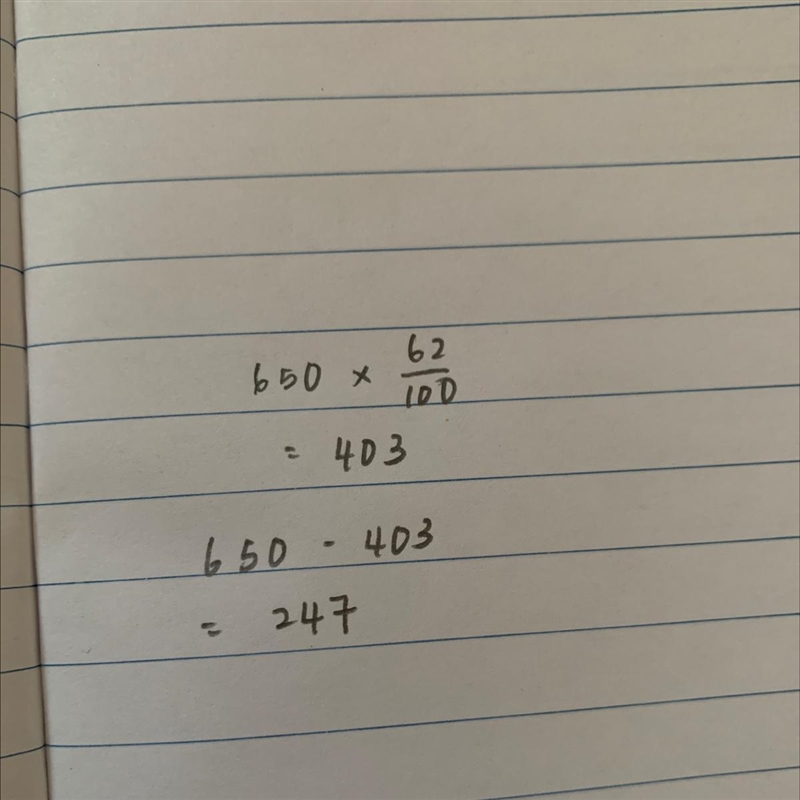 650 × 62/100
= 403
650 - 403
= 247